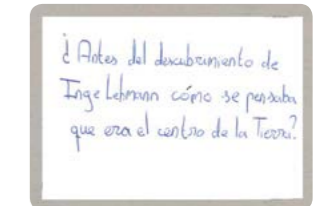 ¿Antes del descubrimiento de
Inge Lehmann cómo se pensaba
que era el centro de la Tierra?